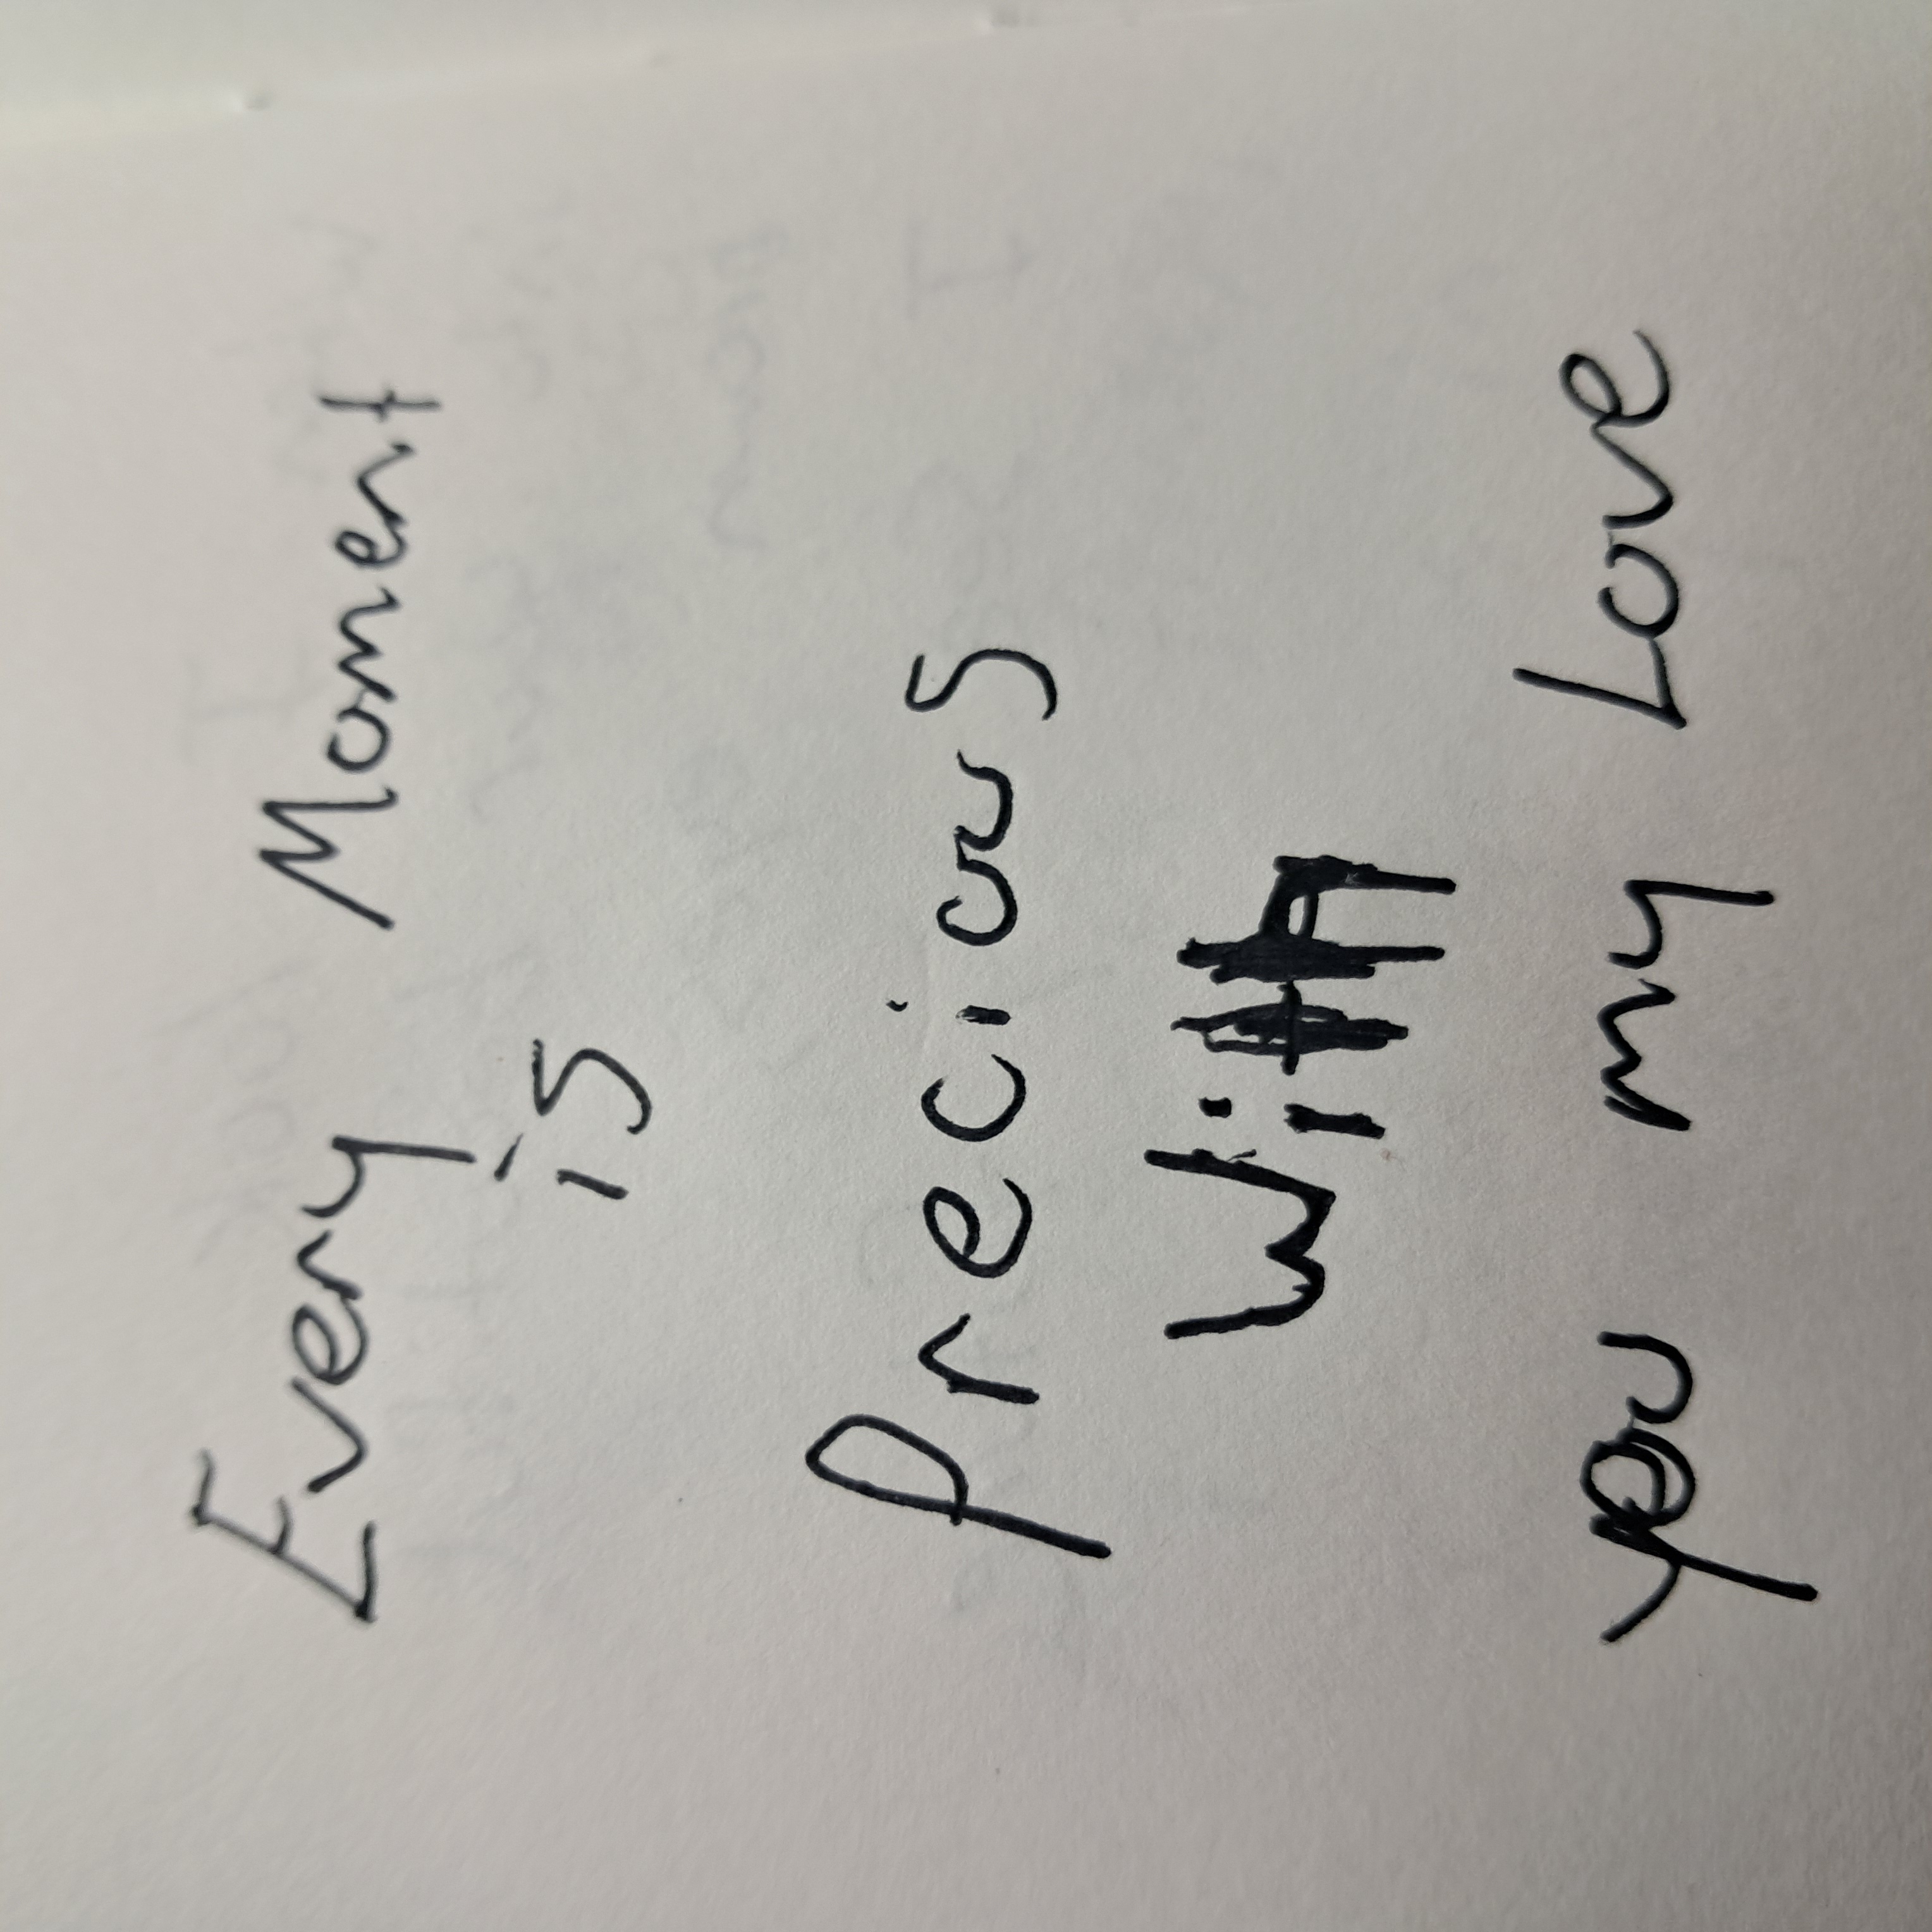 Every Moment
is
Precious
With
you my Love